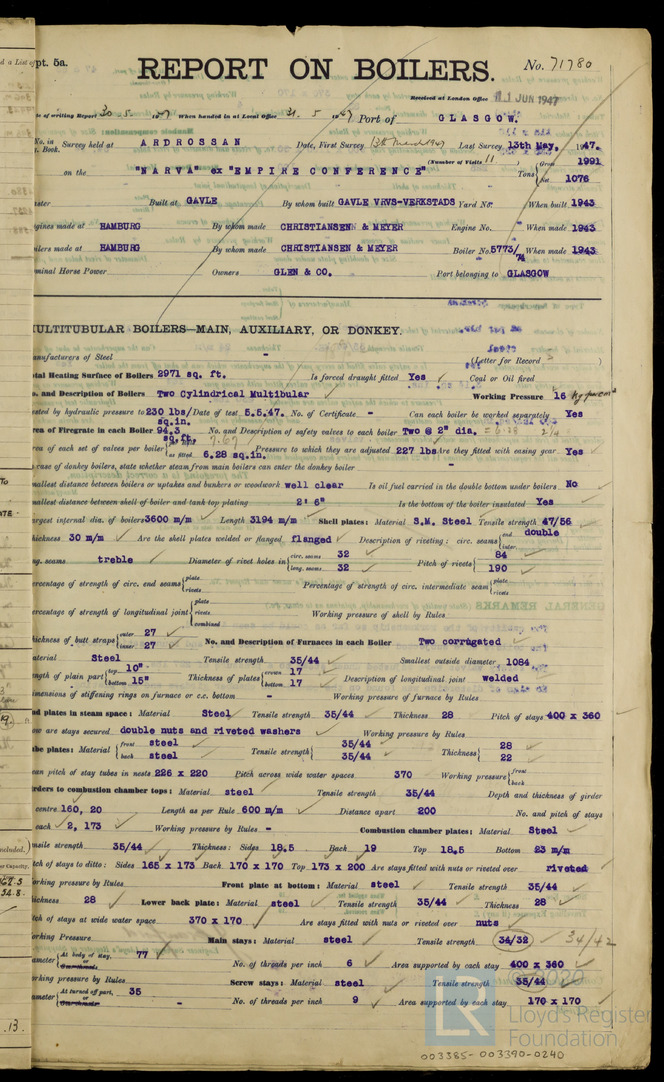 pt. 5a.
REPORT ON BOILERS.
No. 71780
Received at London Office 11 JUN 1947
te of writing Report 30.5. 1947 When handed in at Local Office 31. 5 1947 Port of GLASGOW.
No. in Book. Survey held at ARDROSSAN Date, First Survey 13th March 1947 Last Survey 13th May. 1947.
(Number of Visits 11 )
on the "NARVA" ex "EMPIRE CONFERENCE" Tons Gross 1991 Net 1076
ster Built at GAVLE By whom built GAVLE VRVS-VERKSTADS Yard No. When built 1943
ngines made at HAMBURG By whom made CHRISTIANSENN & MEYER Engine No. When made 1943
oilers made at HAMBURG By whom made CHRISTIANSEN & MEYER Boiler No. 5773/74 When made 1943
ominal Horse Power Owners GLEN & CO. Port belonging to GLASGOW
MULTITUBULAR BOILERS—MAIN, AUXILIARY, OR DONKEY.
anufacturers of Steel - (Letter for Record )
otal Heating Surface of Boilers 2971 sq. ft. Is forced draught fitted Yes Coal or Oil fired
o. and Description of Boilers Two Cylindrical Multibular Working Pressure 16
ested by hydraulic pressure to 230 lbs/sq.in. Date of test 5.5.47. No. of Certificate - Can each boiler be worked separately Yes
rea of Firegrate in each Boiler 94.3 sq.ft. No. and Description of safety valves to each boiler Two @ 2" dia. = 6.28 2 1/4
rea of each set of valves per boiler per Rule 7.67 as fitted 6.28 sq.in. Pressure to which they are adjusted 227 lbs Are they fitted with easing gear Yes
case of donkey boilers, state whether steam from main boilers can enter the donkey boiler -
mallest distance between boilers or uptakes and bunkers or woodwork well clear Is oil fuel carried in the double bottom under boilers No
mallest distance between shell of boiler and tank top plating 2' 6" Is the bottom of the boiler insulated Yes
argest internal dia. of boilers 3600 m/m Length 3194 m/m Shell plates: Material S.M. Steel Tensile strength 47/56
hickness 30 m/m Are the shell plates welded or flanged flanged Description of riveting: circ. seams end double inter.
ng. seams treble Diameter of rivet holes in circ. seams 32 long. seams 32 Pitch of rivets 84 190
ercentage of strength of circ. end seams plate rivets Percentage of strength of circ. intermediate seam plate rivets
ercentage of strength of longitudinal joint plate rivets combined Working pressure of shell by Rules
hickness of butt straps outer 27 inner 27 No. and Description of Furnaces in each Boiler Two corrugated
aterial Steel Tensile strength 35/44 Smallest outside diameter 1084
ngth of plain part top 10" bottom 15" Thickness of plates crown 17 bottom 17 Description of longitudinal joint welded
imensions of stiffening rings on furnace or c.c. bottom - Working pressure of furnace by Rules
nd plates in steam space: Material Steel Tensile strength 35/44 Thickness 28 Pitch of stays 400 x 360
ow are stays secured double nuts and riveted washers Working pressure by Rules
ube plates: Material front steel back steel Tensile strength 35/44 35/44 Thickness 28 22
ean pitch of stay tubes in nests 226 x 220 Pitch across wide water spaces 370 Working pressure front back
irders to combustion chamber tops: Material steel Tensile strength 35/44 Depth and thickness of girder
centre 160, 20 Length as per Rule 600 m/m Distance apart 200 No. and pitch of stays
each 2, 173 Working pressure by Rules - Combustion chamber plates: Material Steel
ensile strength 35/44 Thickness: Sides 18.5 Back 19 Top 18.5 Bottom 23 m/m
itch of stays to ditto: Sides 165 x 173 Back 170 x 170 Top 173 x 200 Are stays fitted with nuts or riveted over riveted
orking pressure by Rules Front plate at bottom: Material steel Tensile strength 35/44
hickness 28 Lower back plate: Material steel Tensile strength 35/44 Thickness 28
itch of stays at wide water space 370 x 170 Are stays fitted with nuts or riveted over nuts
orking Pressure Main stays: Material steel Tensile strength 34/32 34/42
ameter At body of stay, 77 or Over threads No. of threads per inch 6 Area supported by each stay 400 x 360
orking pressure by Rules Screw stays: Material steel Tensile strength 35/44
ameter At turned off part, 35 or Over threads - No. of threads per inch 9 Area supported by each stay 170 x 170
© 2020
LR Lloyd's Register Foundation
003385-003390-0240